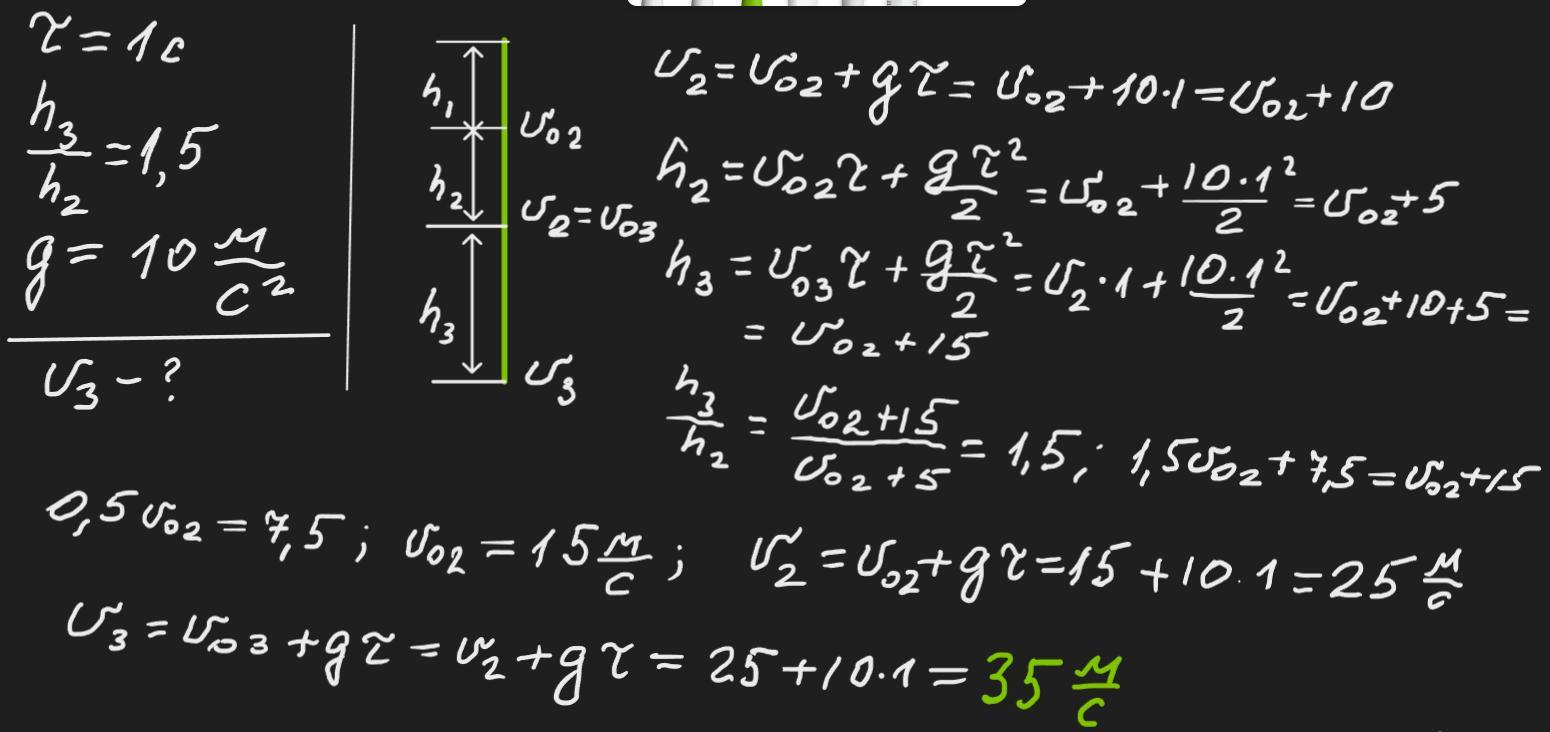 τ = 1 с
h₃/h₂ = 1,5
g = 10 м/с²
υ₃ − ?
h₁
υ₀₂
h₂
υ₂ = υ₀₃
h₃
υ₃
υ₂ = υ₀₂ + gτ = υ₀₂ + 10·1 = υ₀₂ + 10
h₂ = υ₀₂τ + gτ²/2 = υ₀₂ + 10·1²/2 = υ₀₂ + 5
h₃ = υ₀₃τ + gτ²/2 = υ₂·1 + 10·1²/2 = υ₀₂ + 10 + 5 =
= υ₀₂ + 15
h₃/h₂ = (υ₀₂ + 15)/(υ₀₂ + 5) = 1,5; 1,5υ₀₂ + 7,5 = υ₀₂ + 15
0,5υ₀₂ = 7,5; υ₀₂ = 15 м/с; υ₂ = υ₀₂ + gτ = 15 + 10·1 = 25 м/с
υ₃ = υ₀₃ + gτ = υ₂ + gτ = 25 + 10·1 = 35 м/с